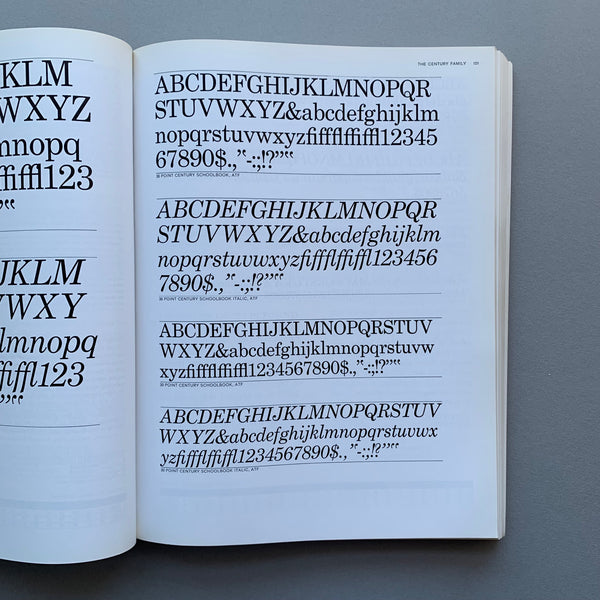 KLM
WXYZ
mnopq
ffiffl123
JKLM
WXY
lmnopq
ffiffl123
THE CENTURY FAMILY 101
ABCDEFGHIJKLMNOPQR
STUVWXYZ&abcdefghijklm
nopqrstuvwxyzfiffflffiffl12345
67890$.,”-:;!?”“
18 POINT CENTURY SCHOOLBOOK, ATF
ABCDEFGHIJKLMNOPQR
STUVWXYZ&abcdefghijklm
nopqrstuvwxyzfiffflffiffl123456
7890$.,”-:;!?”“
18 POINT CENTURY SCHOOLBOOK ITALIC, ATF
ABCDEFGHIJKLMNOPQRSTUV
WXYZ&abcdefghijklmnopqrstuvw
xyzfiffflffiffl1234567890$.,”-:;!?”“
POINT CENTURY SCHOOLBOOK, ATF
ABCDEFGHIJKLMNOPQRSTUV
WXYZ&abcdefghijklmnopqrstuvwx
yzfiffflffiffl1234567890$.,”-:;!?”“
POINT CENTURY SCHOOLBOOK ITALIC, ATF